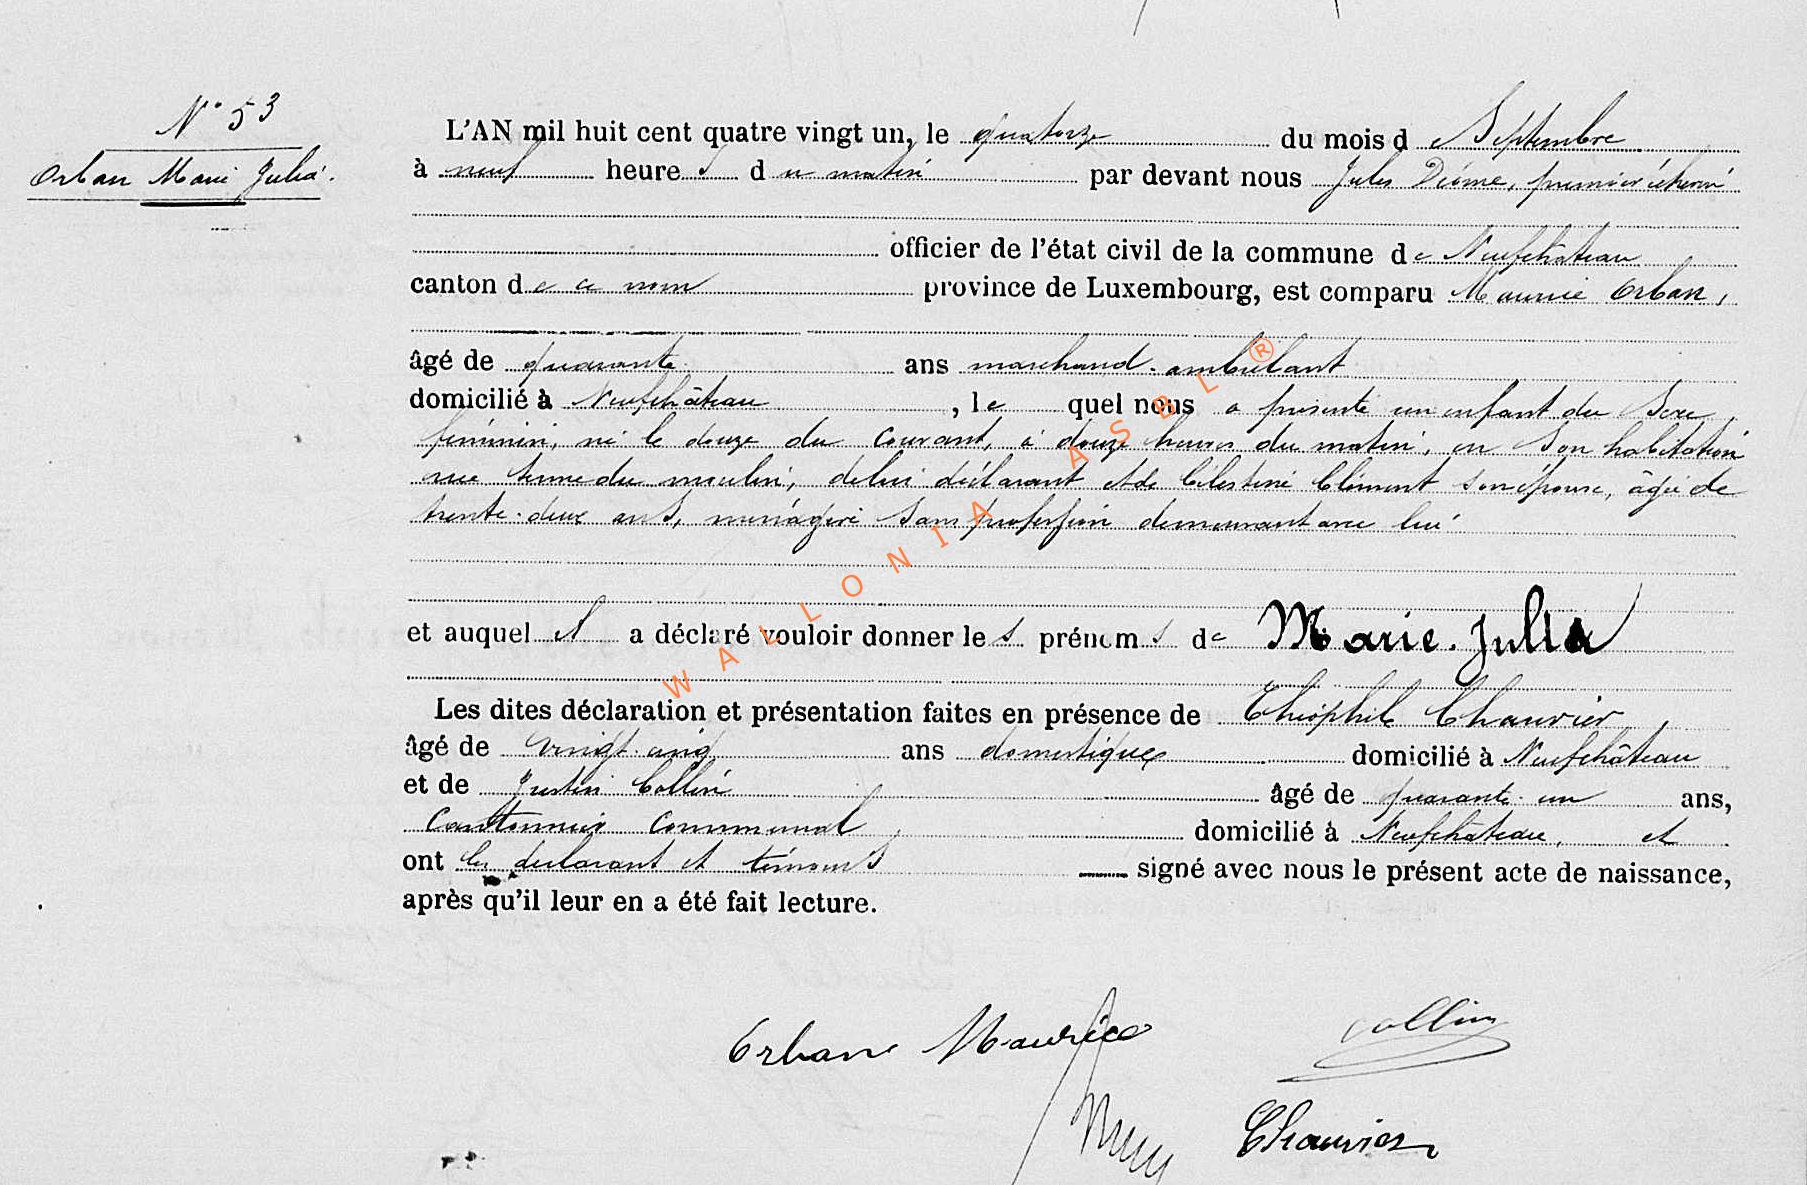 N° 53
Orban Marie Julia.
L'AN mil huit cent quatre vingt un, le quatorze du mois d Septembre
à neuf heures du matin par devant nous Jules Dième, premier échevin
officier de l'état civil de la commune de Neufchâteau
canton de ce nom province de Luxembourg, est comparu Maurice Orban,
âgé de quarante ans marchand-ambulant
domicilié à Neufchâteau, lequel nous a présenté un enfant du Sexe
féminin, né le douze du courant, à douze heures du matin, en Son habitation
rue terme du moulin, de lui déclarant et de Célestine Clément son épouse, âgée de
trente-deux ans, ménagère sans profession demeurant avec lui
et auquel il a déclaré vouloir donner les prénoms de Marie-Julia
Les dites déclaration et présentation faites en présence de Théophile Chauvier,
âgé de vingt-cinq ans domestique domicilié à Neufchâteau
et de Justin Collin âgé de quarante un ans,
Cantonnier Communal, domicilié à Neufchâteau, et
ont les déclarant et témoins signé avec nous le présent acte de naissance,
après qu'il leur en a été fait lecture.
Orban Maurice
Collin
Chauvier
WALLONIA ASBL ®